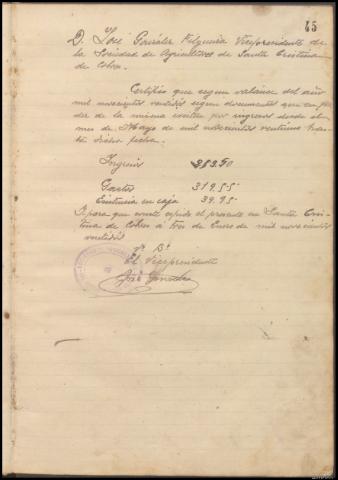 45
D. José González Filgueira Vicepresidente de
la Sociedad de Agricultores de Santa Cristina
de Cobre.
Certifico que segun valance del año
mil novecientos ventidós segun documentos que en po
der de la misma existen por ingresos desde el
mes de Mayo de mil novecientos ventiuno
dicha fecha.
Ingresos
Gastos 319.55
Existencia en caja 39.95
Y para que conste expido el presente en Santa Cris
tina de Cobre a tres de Enero de mil novecientos
ventidós
Vº Bº
El Vicepresidente
José González